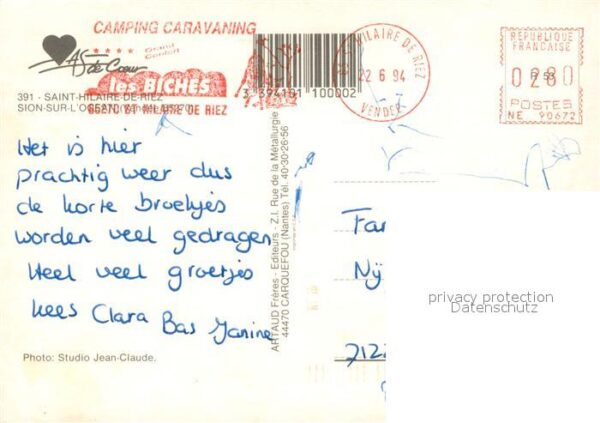 CAMPING CARAVANING
★ ★ ★ ★ Grand Confort
AS de Cœur
les BICHES
391 - SAINT-HILAIRE-DE-RIEZ
SION-SUR-L'OCEAN
85270 ST HILAIRE DE RIEZ
3 394101 100002
HILAIRE DE RIEZ
22 6 94
VENDEE
REPUBLIQUE
FRANCAISE
0280
POSTES
NE 90672
Het is hier
prachtig weer dus
de korte broekjes
worden veel gedragen
Heel veel groetjes
Kees Clara Bas Janine
Photo: Studio Jean-Claude.
ARTAUD Frères - Editeurs - Z.I. Rue de la Métallurgie
44470 CARQUEFOU (Nantes) Tél. 40-30-26-56
Fa
Nij
7122
privacy protection
Datenschutz